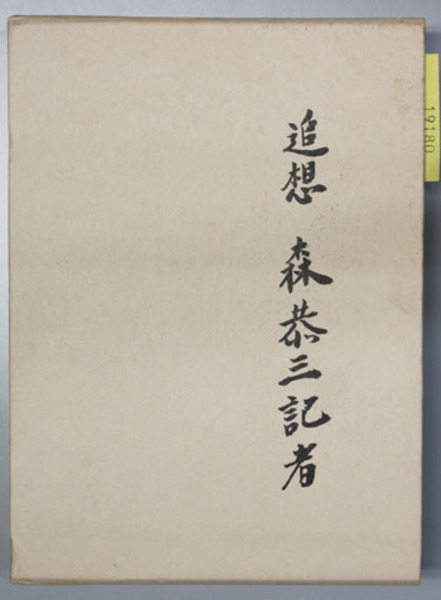 追想　森恭三記者
19180